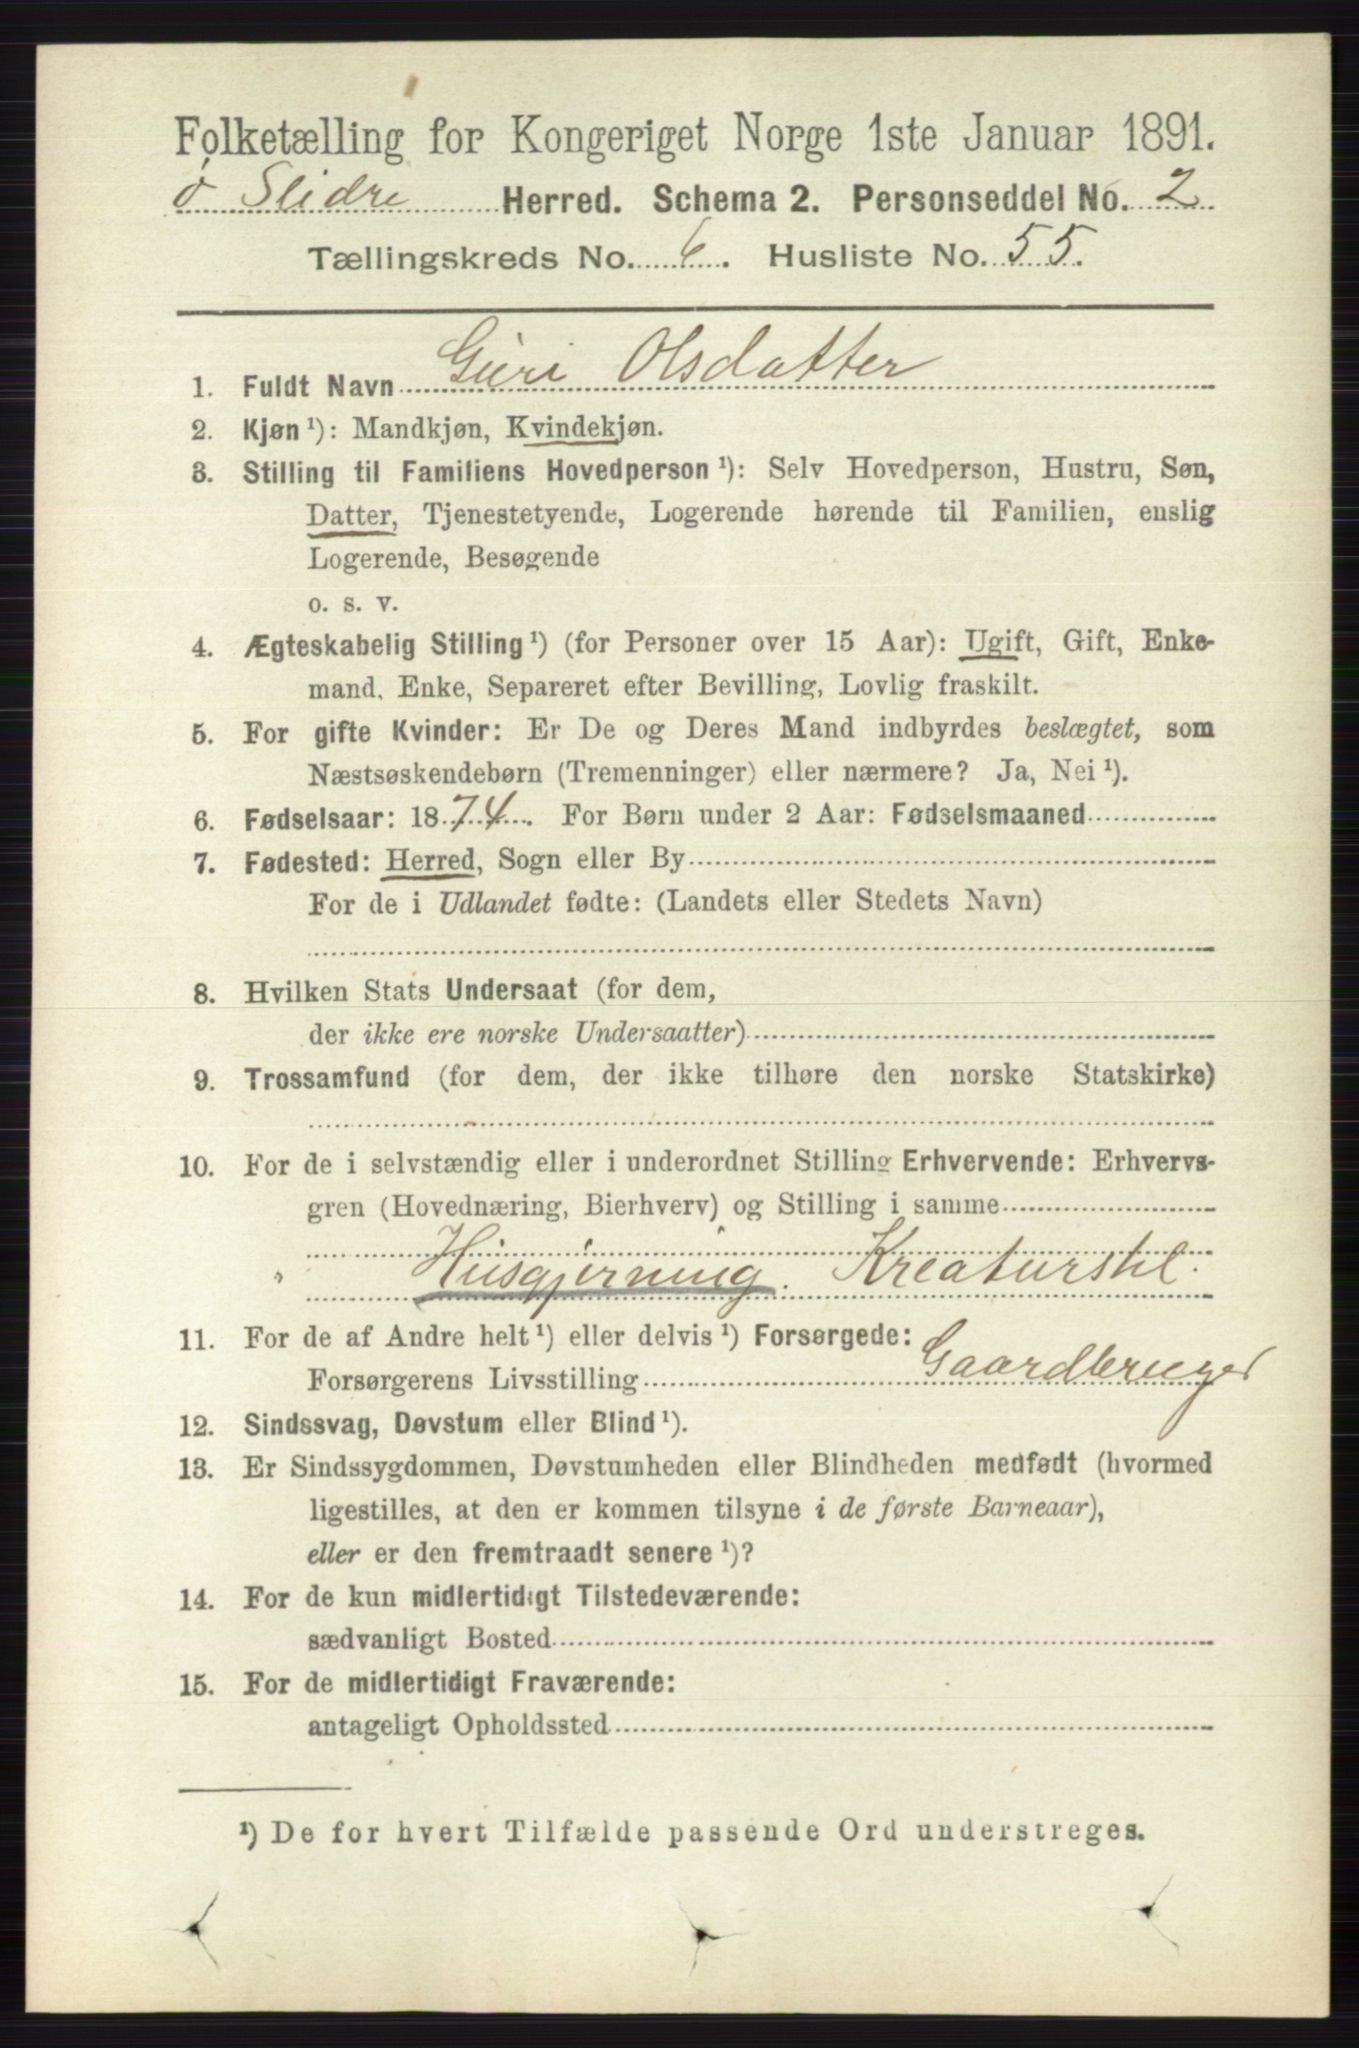 Folketælling for Kongeriget Norge 1ste Januar 1891.
Ø Slidre Herred. Schema 2. Personseddel No. 2
Tællingskreds No. 6. Husliste No. 55.
1. Fuldt Navn Guri Olsdatter
2. Kjøn ¹): Mandkjøn, Kvindekjøn.
3. Stilling til Familiens Hovedperson ¹): Selv Hovedperson, Hustru, Søn,
Datter, Tjenestetyende, Logerende hørende til Familien, enslig
Logerende, Besøgende
o. s. v.
4. Ægteskabelig Stilling ¹) (for Personer over 15 Aar): Ugift, Gift, Enke-
mand, Enke, Separeret efter Bevilling, Lovlig fraskilt.
5. For gifte Kvinder: Er De og Deres Mand indbyrdes beslægtet, som
Næstsøskendebørn (Tremenninger) eller nærmere? Ja, Nei ¹).
6. Fødselsaar: 1874. For Børn under 2 Aar: Fødselsmaaned
7. Fødested: Herred, Sogn eller By
For de i Udlandet fødte: (Landets eller Stedets Navn)
8. Hvilken Stats Undersaat (for dem,
der ikke ere norske Undersaatter)
9. Trossamfund (for dem, der ikke tilhøre den norske Statskirke)
10. For de i selvstændig eller i underordnet Stilling Erhvervende: Erhvervs-
gren (Hovednæring, Bierhverv) og Stilling i samme
Husgjerning. Kreaturstel.
11. For de af Andre helt ¹) eller delvis ¹) Forsørgede:
Forsørgerens Livsstilling Gaardbruger
12. Sindssvag, Døvstum eller Blind ¹).
13. Er Sindssygdommen, Døvstumheden eller Blindheden medfødt (hvormed
ligestilles, at den er kommen tilsyne i de første Barneaar),
eller er den fremtraadt senere ¹)?
14. For de kun midlertidigt Tilstedeværende:
sædvanligt Bosted
15. For de midlertidigt Fraværende:
antageligt Opholdssted
¹) De for hvert Tilfælde passende Ord understreges.